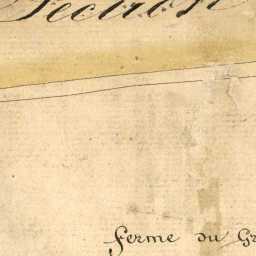 Section
ferme du Gr